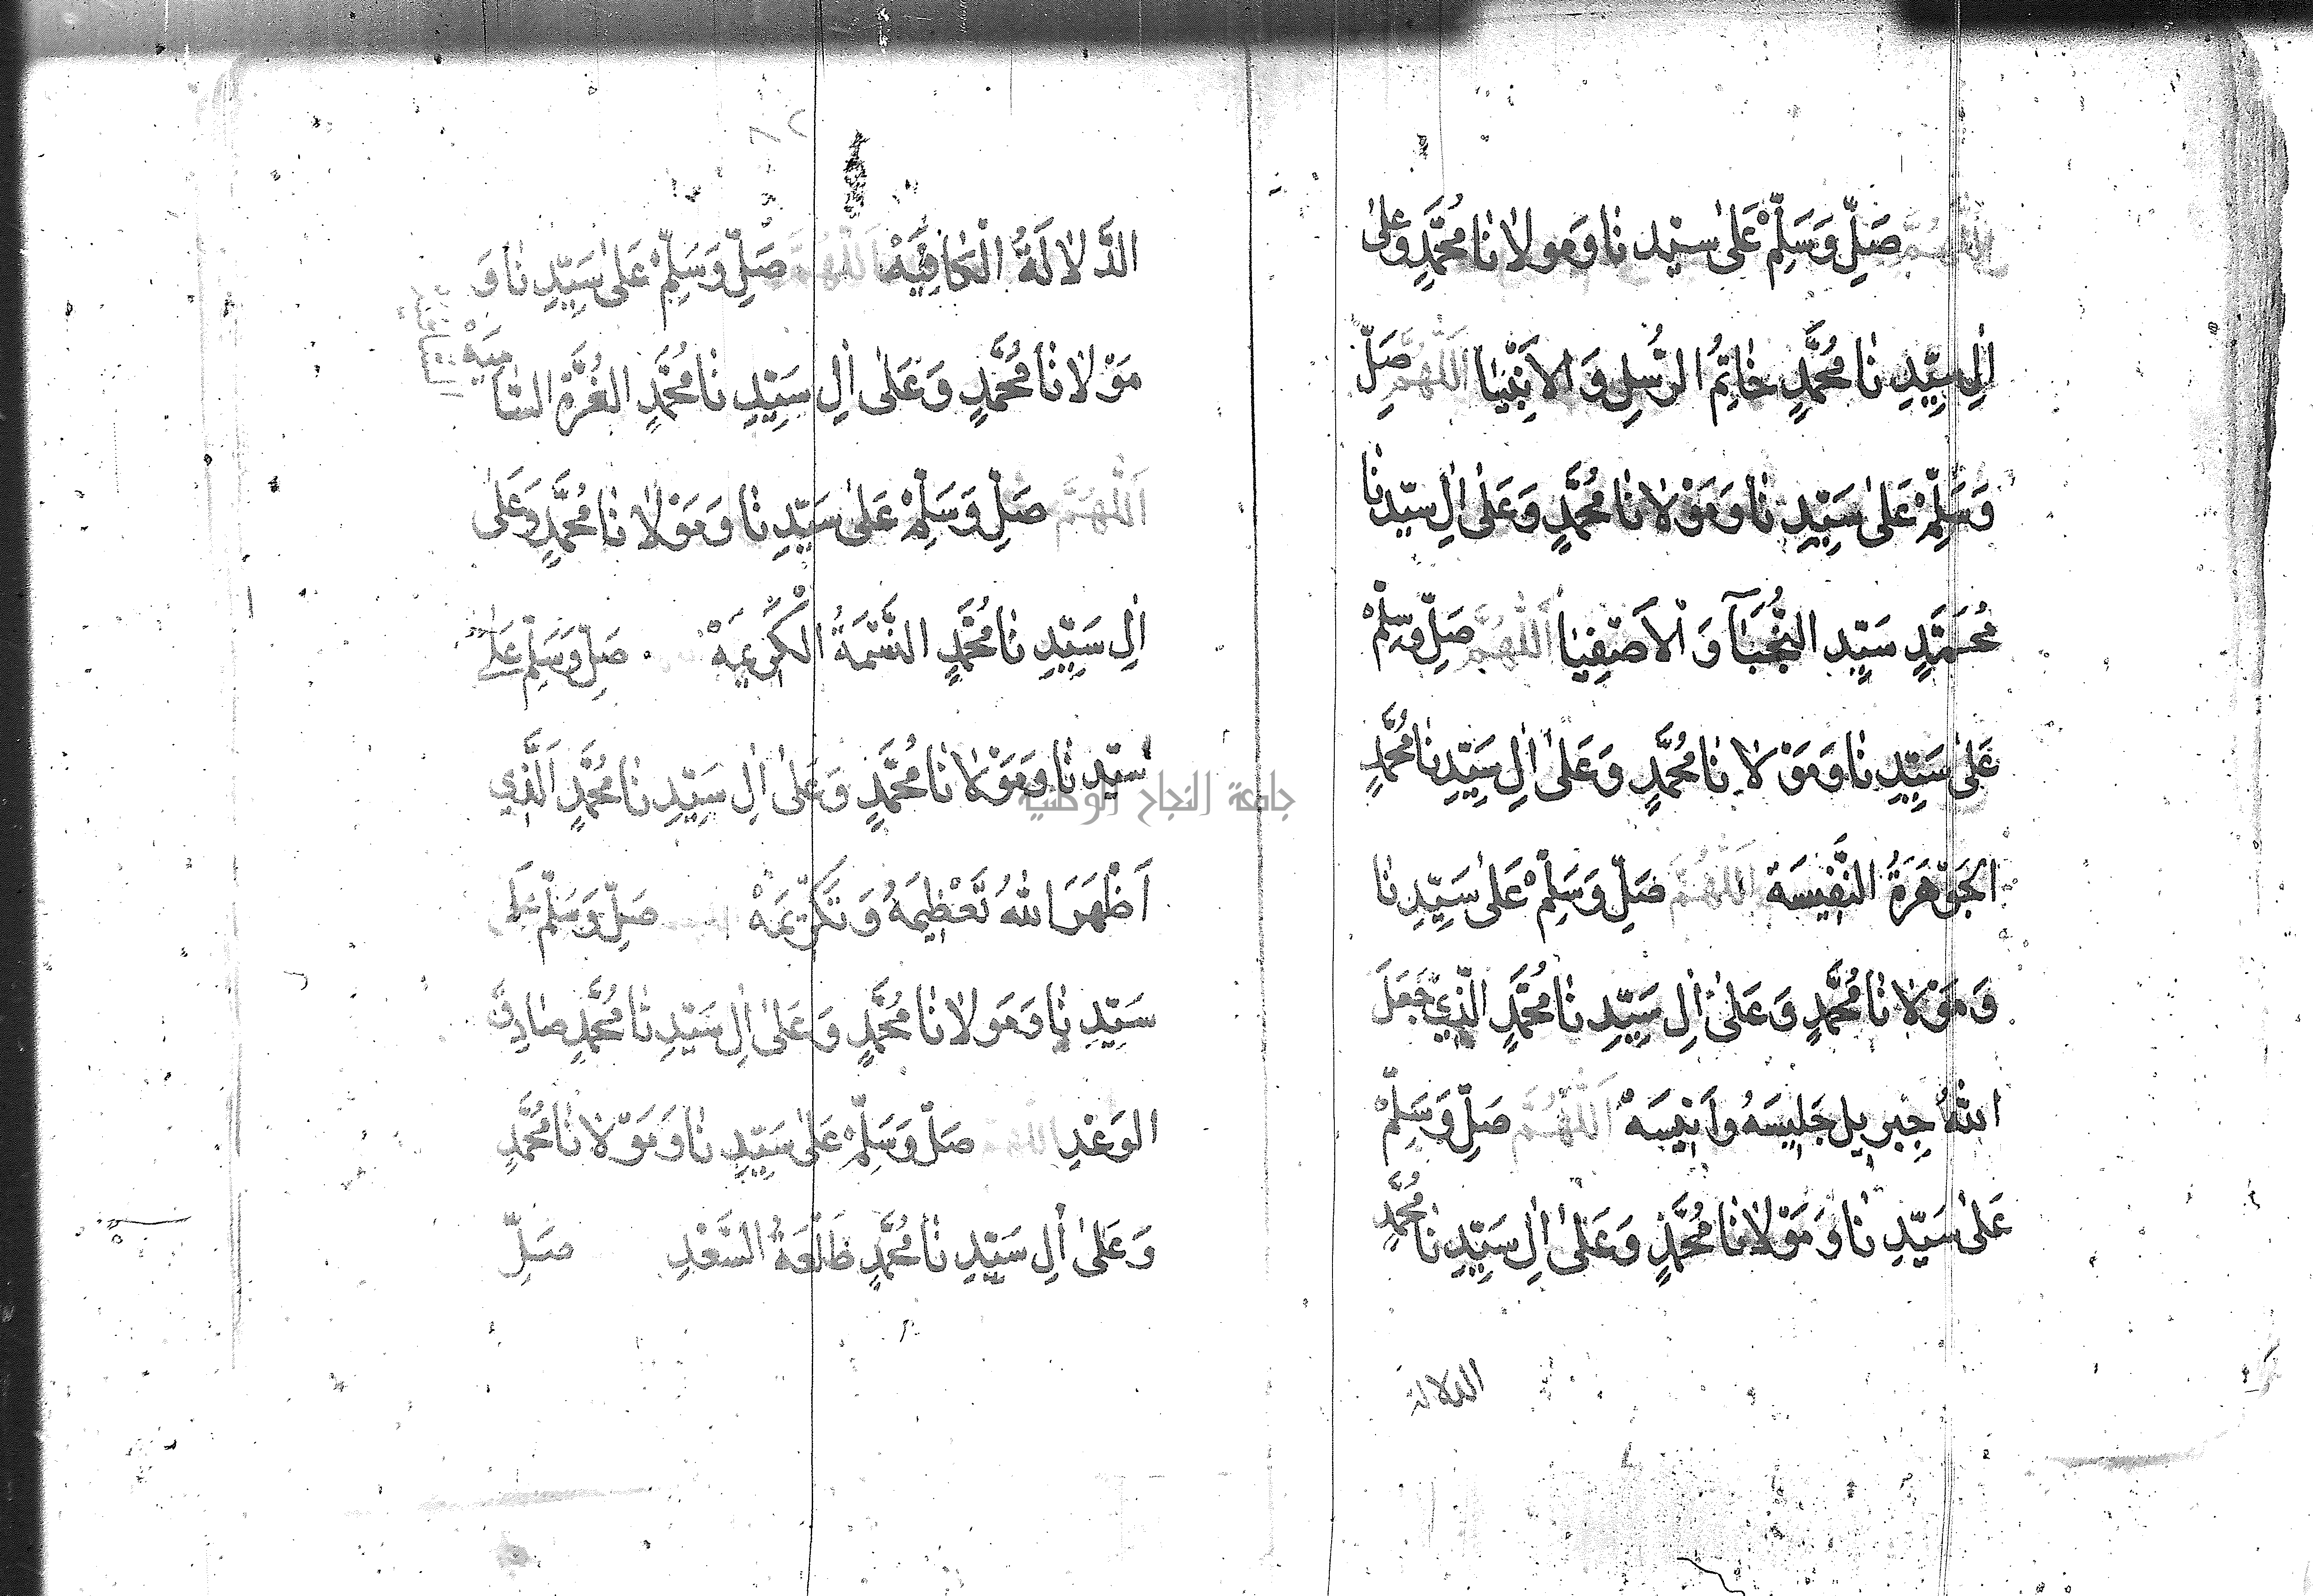 اَللّٰهُمَّ صَلِّ وَسَلِّمْ عَلىٰ سيّد نا وَمولانا مُحَمَّدٍ وَعلىٰ
اٰلِ سَيِّدِ نا مُحَمَّدٍ خاتِمُ الرُّسِلِ وَالاَنْبِيٰا اَللّٰهُمَّ صَلِّ
وَسَلِّمْ عَلىٰ سَيِّدِ نٰا وَمَوْلانا مُحَمَّدٍ وَعَلىٰ اٰلِ سيّدنٰا
مُحَمَّدٍ سَيِّد النُّجَبَآ وَالاَصْفِيٰا اَللّٰهُمَّ صَلِّ وسَلِّمْ
عَلىٰ سَيِّدِ نٰا وَمَوْ لانٰا مُحَمَّدٍ وَعَلىٰ اٰلِ سَيِّدِنٰا مُحَمَّدٍ
الجَوْهَرَةُ النَّفِيسَة اَللّٰهُمَّ صَلِّ وَسَلِّمْ عَلىٰ سَيِّدِ نٰا
وَمَوْلانٰا مُحَمَّدٍ وَعَلىٰ اٰلِ سَيِّدِ نٰا مُحَمَّدٍ الَّذِي جَعَلَ
اللهُ جِبريل جَلِيسَهُ واَنِيسَهْ اَللّٰهُمَّ صَلِّ وَسَلِّمْ
عَلىٰ سَيِّدِ نٰا وَمَوْلانٰا مُحَمَّدٍ وَعَلىٰ اٰلِ سَيِّدِ نٰا مُحَمَّدٍ
الدلالة
الدَّلالَةُ الْكٰافِيَهْ اَللّٰهُمَّ صَلِّ وَسَلِّمْ عَلىٰ سَيِّدِ نٰا وَ
مَوْلانٰا مُحَمَّدٍ وَعَلىٰ اٰلِ سَيِّدِ نٰا مُحَمَّدٍ الغُرَّة السّٰا
مِيَهْ
اَللّٰهُمَّ صَلِّ وَسَلِّمْ عَلىٰ سَيِّدِ نٰا وَمَوْلانٰا مُحَمَّدٍ وَعَلىٰ
اٰلِ سَيِّدِ نٰا مُحَمَّدٍ النَّسَمَةُ الْكَرِيمَهْ صَلِّ وَسَلِّمْ عَلىٰ
سيّدِ نٰا وَمَوْلانٰا مُحَمَّدٍ وَعَلىٰ اٰلِ سَيِّدِ نٰا مُحَمَّدٍ اَلَّذِي
اَظْهَرَ اللهُ تَعْظِيمَهُ وَتَكْرِيمَهْ صَلِّ وَسَلِّمْ عَلىٰ
سَيِّدِ نٰا وَمَولانٰا مُحَمَّدٍ وَعَلىٰ اٰلِ سَيِّدِ نٰا مُحَمَّدٍ صٰادِقَ
الوَعْدِ اَللّٰهُمَّ صَلِّ وَسَلِّمْ عَلىٰ سَيِّدِ نٰا وَمَوْلانٰا مُحَمَّدٍ
وَعَلىٰ اٰلِ سَيِّدِ نٰا مُحَمَّدٍ طَلْعَةُ السَّعْدِ صَلِّ
جامعة النجاح الوطنية